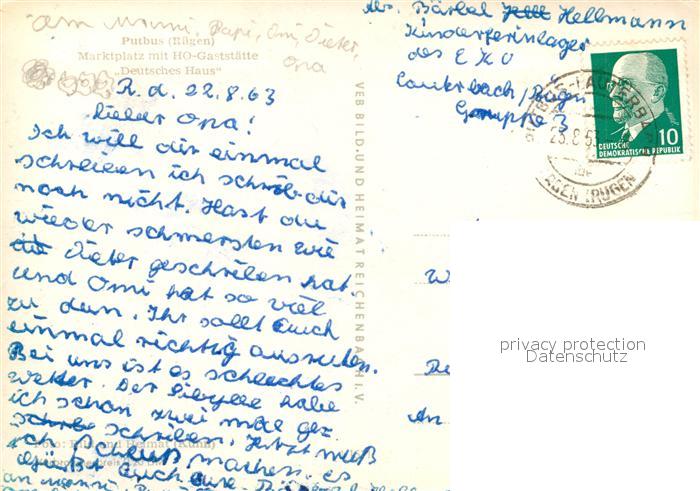 an Mammi, Papi, Omi, Dieter,
Opa
Putbus (Rügen)
Marktplatz mit HO-Gaststätte
„Deutsches Haus“
Abs. Bärbel Hellmann
Kinderferienlager
des EKO
Lauterbach/Rügen
Gruppe 3
R. d. 22.8.63
Lieber Opa!
Ich will dir einmal
schreiben ich schrieb dir
noch nicht. Hast du
wieder schmersten wie
die Dieter geschrieben hat.
und Omi hat so viel
zu dun. Ihr sollt Euch
einmal richtig ausruhen.
Bei uns ist es schlechtes
wetter. Der Sibylle habe
ich schon zwei mal gez
schriben. Jetzt muß
ich schluß machen. Es
Grüßt Euch eure
an Mammi,
VEB BILD UND HEIMAT REICHENBACH I. V.
PUTBUS-LAUTERBACH
23.8.63
(RÜGEN)
10
DEUTSCHE
DEMOKRATISCHE REPUBLIK
W
An
Foto: Bild und Heimat (Kühn)
privacy protection
Datenschutz